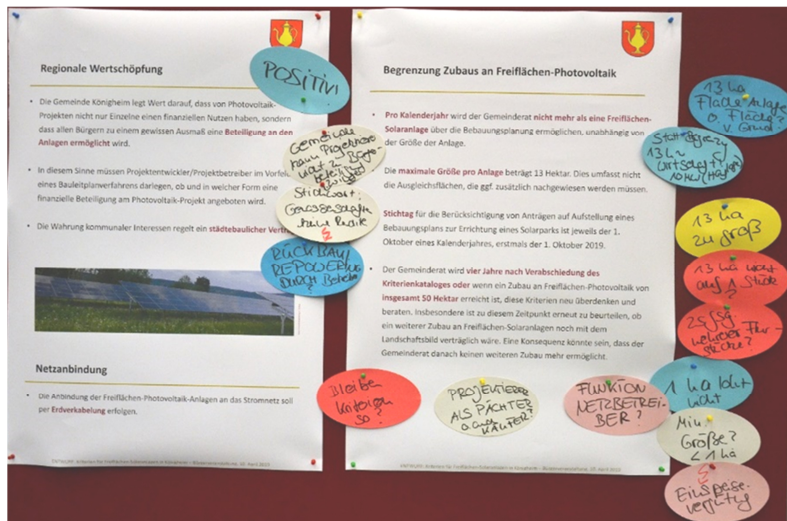 Regionale Wertschöpfung
• Die Gemeinde Königheim legt Wert darauf, dass von Photovoltaik-
Projekten nicht nur Einzelne einen finanziellen Nutzen haben, sondern
dass allen Bürgern zu einem gewissen Ausmaß eine Beteiligung an den
Anlagen ermöglicht wird.
• In diesem Sinne müssen Projektentwickler/Projektbetreiber im Vorfeld
eines Bauleitplanverfahrens darlegen, ob und in welcher Form eine
finanzielle Beteiligung am Photovoltaik-Projekt angeboten wird.
• Die Wahrung kommunaler Interessen regelt ein städtebaulicher
Netzanbindung
• Die Anbindung der Freiflächen-Photovoltaik-Anlagen an das Stromnetz soll
per Erdverkabelung erfolgen.
POSITIV!
Gemeinde
kann
Stichwort:
RÜCKBAU
REPOWERING
DURCH
Begrenzung Zubaus an Freiflächen-Photovoltaik
• Pro Kalenderjahr wird der Gemeinderat nicht mehr als eine Freiflächen-
Solaranlage über die Bebauungsplanung ermöglichen, unabhängig von
der Größe der Anlage.
Die maximale Größe pro Anlage beträgt 13 Hektar. Dies umfasst nicht
die Ausgleichsflächen, die ggf. zusätzlich nachgewiesen werden müssen.
Stichtag für die Berücksichtigung von Anträgen auf Aufstellung eines
Bebauungsplans zur Errichtung eines Solarparks ist jeweils der 1.
Oktober eines Kalenderjahres, erstmals der 1. Oktober 2019.
• Der Gemeinderat wird vier Jahre nach Verabschiedung des
Kriterienkataloges oder wenn ein Zubau an Freiflächen-Photovoltaik von
insgesamt 50 Hektar erreicht ist, diese Kriterien neu überdenken und
beraten. Insbesondere ist zu diesem Zeitpunkt erneut zu beurteilen, ob
ein weiterer Zubau an Freiflächen-Solaranlagen noch mit dem
Landschaftsbild verträglich wäre. Eine Konsequenz könnte sein, dass der
Gemeinderat danach keinen weiteren Zubau mehr ermöglicht.
13 ha
Fläche Anlage
o. Fläche
v. Grund
13 ha
10 MW
13 ha
zu groß
13 ha nicht
auf 1 Stück
?
mehrere Flur-
stücke?
1 ha lohnt
nicht
Min.
Größe?
< 1 ha
Einspeise-
vergütung
Bleiben
Kriterien
so?
PROJEKTIERER
ALS PÄCHTER
o. auch
KÄUFER?
FUNKTION
NETZBETREI-
BER?